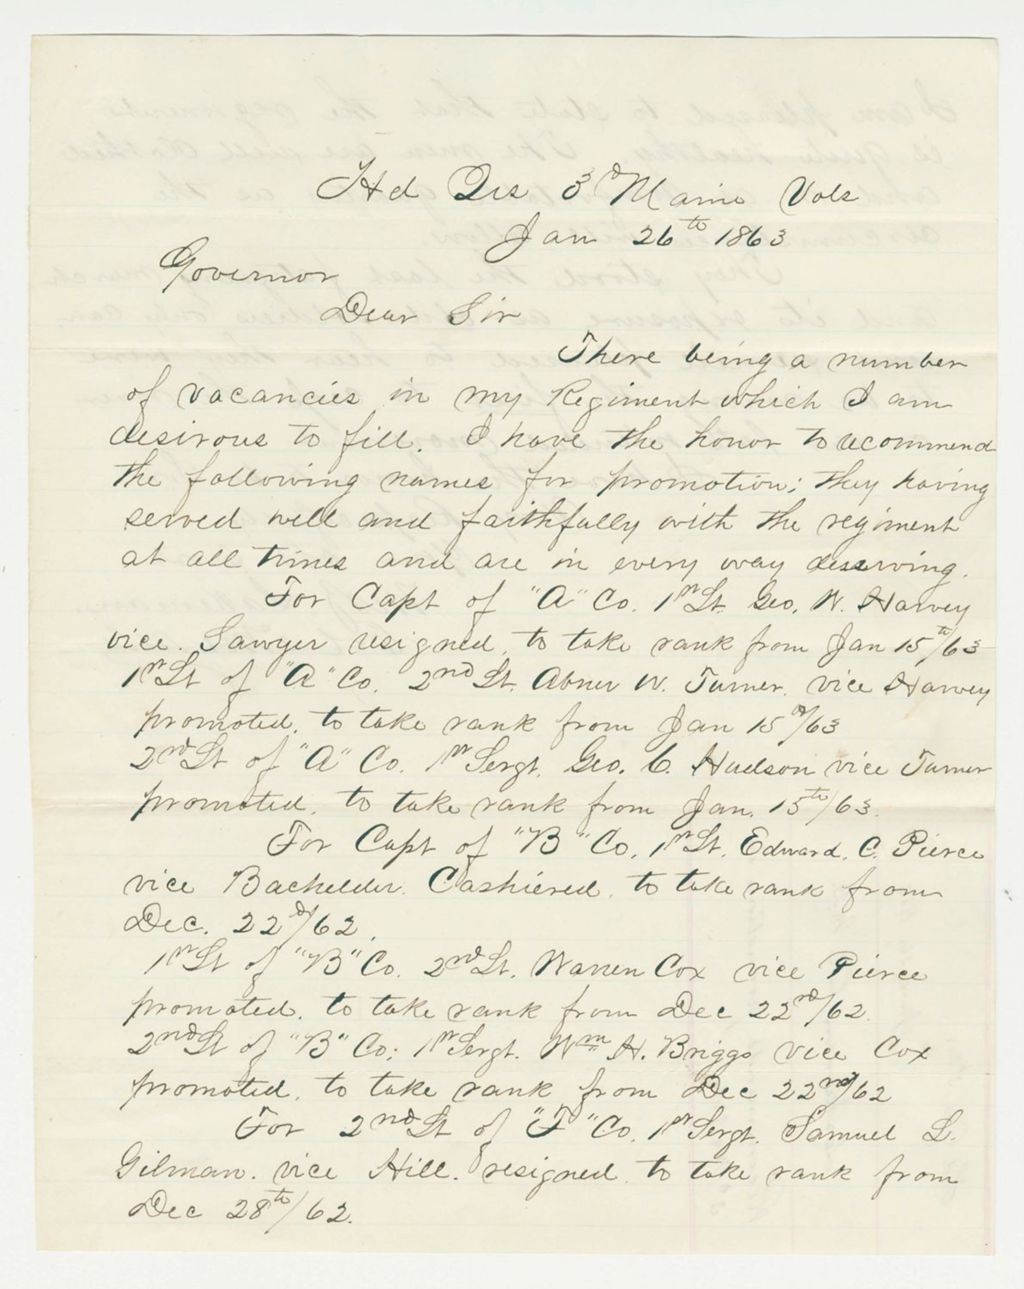 Hd Qrs 3d Maine Vols
Jan 26th 1863
Governor
Dear Sir
There being a number
of vacancies in my Regiment which I am
desirous to fill. I have the honor to recommend
the following names for promotion; they having
served well and faithfully with the regiment
at all times and are in every way deserving.
For Capt of "A" Co. 1st Lt. Geo. W. Harvey
vice. Sawyer resigned, to take rank from Jan 15th/63
1st Lt of "A" Co. 2nd Lt. Abner W. Turner. vice Harvey
promoted. to take rank from Jan 15th/63
2nd Lt of "A" Co. 1st Sergt. Geo. C. Hudson vice Turner
promoted. to take rank from Jan. 15th/63.
For Capt of "B" Co. 1st Lt. Edward. C. Pierce
vice Bachelder. Cashiered. to take rank from
Dec. 22d/62.
1st Lt of "B" Co. 2nd Lt. Warren Cox vice Pierce
promoted. to take rank from Dec 22nd/62.
2nd Lt of "B" Co; 1st Sergt. Wm H. Briggs vice Cox
promoted. to take rank from Dec 22nd/62
For 2nd Lt of "F" Co. 1st Sergt. Samuel L.
Gilman. vice Hill. resigned. to take rank from
Dec 28th/62.